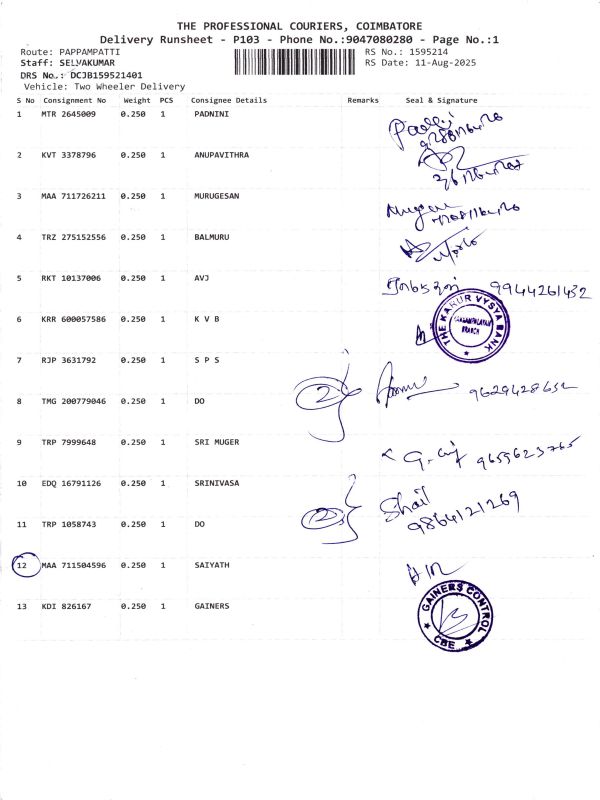 THE PROFESSIONAL COURIERS, COIMBATORE
Delivery Runsheet - P103 - Phone No.:9047080280 - Page No.:1
Route: PAPPAMPATTI RS No.: 1595214
Staff: SELVAKUMAR RS Date: 11-Aug-2025
DRS No.: DCJB159521401
Vehicle: Two Wheeler Delivery
S No Consignment No Weight PCS Consignee Details Remarks Seal & Signature
1 MTR 2645009 0.250 1 PADNINI
2 KVT 3378796 0.250 1 ANUPAVITHRA
3 MAA 711726211 0.250 1 MURUGESAN
4 TRZ 275152556 0.250 1 BALMURU
5 RKT 10137006 0.250 1 AVJ 9944261432
6 KRR 600057586 0.250 1 K V B THE KARUR VYSYA BANK BRANCH
7 RJP 3631792 0.250 1 S P S
8 TMG 200779046 0.250 1 DO 2 9629428652
9 TRP 7999648 0.250 1 SRI MUGER 9659623765
10 EDQ 16791126 0.250 1 SRINIVASA
11 TRP 1058743 0.250 1 DO 2 Shail 9864121269
12 MAA 711504596 0.250 1 SAIYATH
13 KDI 826167 0.250 1 GAINERS GAINERS CONTROL CBE